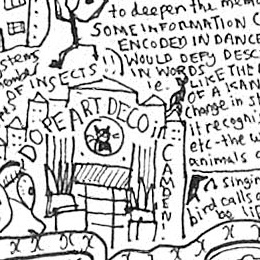 to deepen the mem
SOME INFORMATION C
ENCODED IN DANCE
WOULD DEFY DESC
IN WORDS
LIKE THE
OF INSECTS!)
e.
OF A KAN
change in s
it recogni
etc - the w
animals
DOPE ART DECO in
CAMDEN!
singin
bird calls
be li